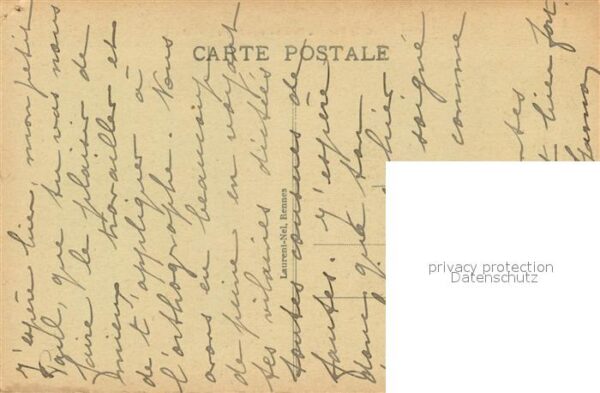 CARTE POSTALE
J'espère bien, mon petit
Paul, que tu vas nous
faire le plaisir de
mieux travailler et
de t'appliquer à
l'orthographe. Nous
avons eu beaucoup
de peine en voyant
tes vilaines dictées
toutes cousues de
fautes. J'espère
donc que ton
cahier
soigné
comme
bien fort.
Laurent-Nel, Rennes
privacy protection
Datenschutz